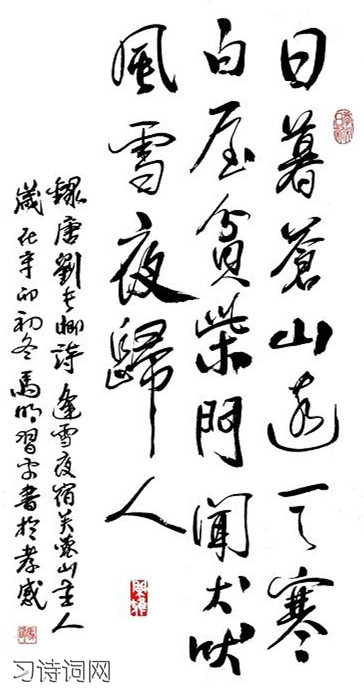 日暮蒼山遠天寒
白屋貧柴門聞犬吠
風雪夜歸人
錄唐劉長卿詩 逢雪夜宿芙蓉山主人
歲在辛卯初冬馬明習書於孝感
习诗词网